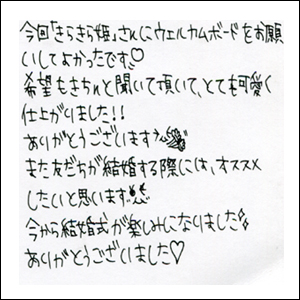 今回「きらきら姫」さんにウェルカムボードをお願
いしてよかったです♡
希望もきちんと聞いて頂いて、とても可愛く
仕上がりました!!
ありがとうございます
また友だちが結婚する際には、オススメ
したいと思います
今から結婚式が楽しみになりました
ありがとうございました♡